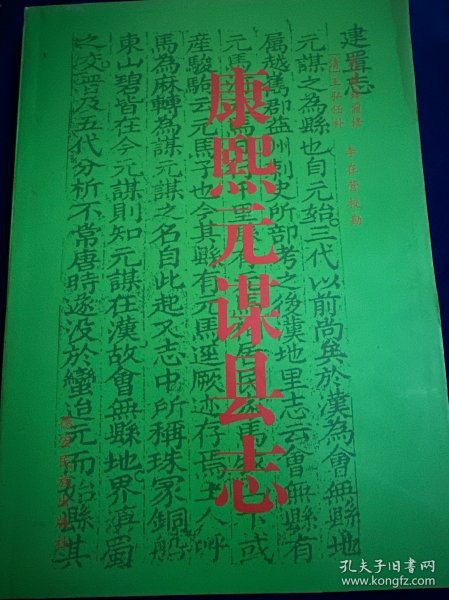 康熙元谋县志
王弘任补
校勘
建置志
元謀之為縣也自元始三代以前尚矣於漢為會無縣地
属越嶲郡益州刺史所部考之後漢地里志云會無縣有
元馬
下或
産駿駒云元馬子也今其縣有元馬逕厥迹存焉土人呼
馬為麻轉為謀元謀之名自此起又志中所稱珠冢銅船
東山碧皆在今元謀則知元謀在漢故會無縣地界滇蜀
之交晉及五代分析不常唐時遂没於蠻迨元而始縣其
德宏民族出版社
孔夫子旧书网
www.kongfz.com